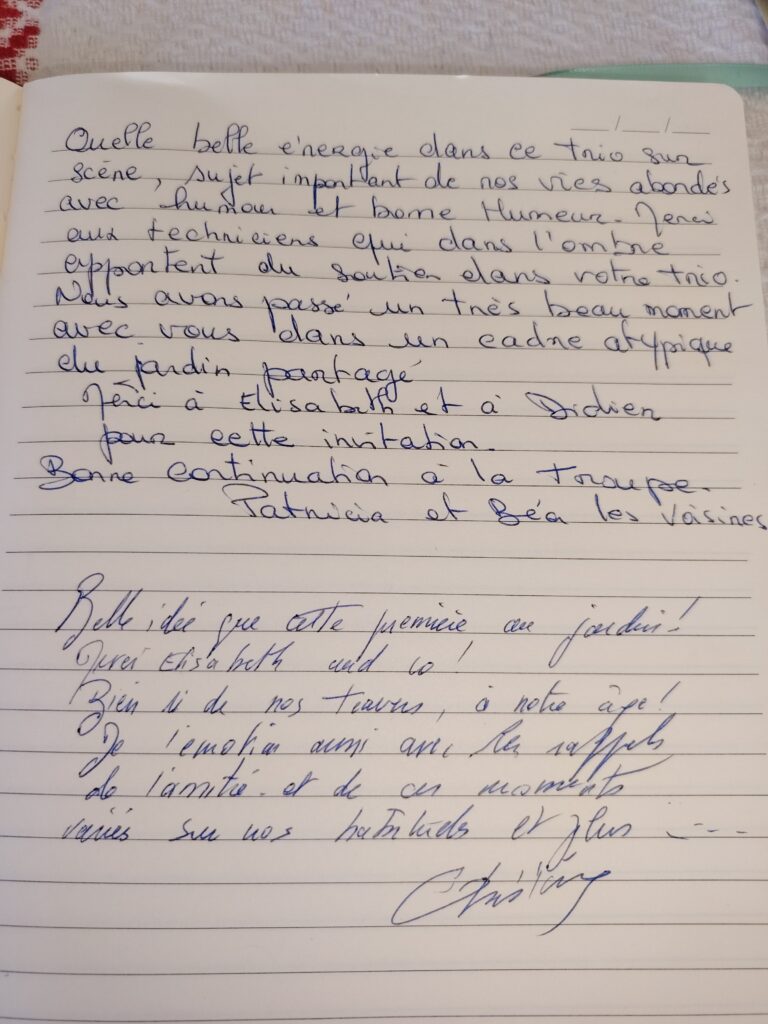 __/__/__
Quelle belle énergie dans ce trio sur
scène, sujet important de nos vies abordés
avec humour et bonne Humeur. Merci
aux techniciens qui dans l'ombre
apportent du soutien dans votre trio.
Nous avons passé un très beau moment
avec vous dans un cadre atypique
du jardin partagé
Merci à Elisabeth et à Didier
pour cette invitation.
Bonne continuation à la Troupe.
Patricia et Béa les Voisines
Belle idée que cette première au jardin!
Merci Elisabeth and co!
Bien ri de nos travers, à notre âge!
De l'émotion aussi avec les rappels
de l'amitié. et de ces moments
variés sur nos et plus ----
Christine